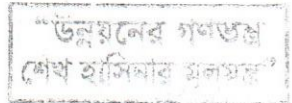 “উন্নয়নের গণতন্ত্র
শেখ হাসিনার মূলমন্ত্র”